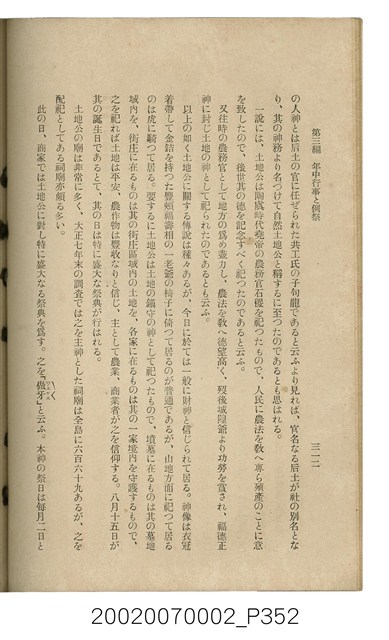 第三編　年中行事と例祭
三一二
の人神とは后土の官に任ぜられた共工氏の子句龍であると云ふより見れば、官名なる后土が社の別名とな
り、其の神務より名づけて自然土地公と稱するに至つたのであるとも思はれる。
一說には、土地公は陶虞時代堯帝の農務官石礎を祀つたもので、人民に農法を敎へ專ら殖產のことに意
を致したので、後世其の德を記念すべく祀つたのであると云ふ。
又往時の農務官として地方の爲め盡力し、農法を敎へ德望高く、歿後城隍爺より功勞を賞され、福德正
神に封じ土地の神として祀られたのであるとも云ふ。
以上の如く土地公に關する傳說は種々あるが、今日に於ては一般に財神と信じられて居る。神像は衣冠
着帶して金錠を持つた豐頰福壽相の一老爺の椅子に倚つて居るのが普通であるが、山地方面に祀つて居る
のは虎に騎つて居る。要するに土地公は土地の鎭守の神として祀つたもので、墳墓に在るものは其の墓地
域內を、街庄に在るものは其の街庄區域內の土地を、各家に在るものは其の一家境內を守護するもので、
之を祀れば土地は平安、農作物は豐收なりと信じ、主として農業、商業者が之を信仰する。八月十五日が
其の誕生日であるとて、其の日は特に盛大な祭典が行はれる。
土地公の祠廟は非常に多く、大正七年末の調査では之を主神とした祠廟は全島に六百六十九あるが、之を
配祀としてある祠廟亦頗る多い。
此の日、商家では土地公に對し特に盛大なる祭典を爲す。之を「做牙」と云ふ。本神の祭日は每月二日と
20020070002_P352